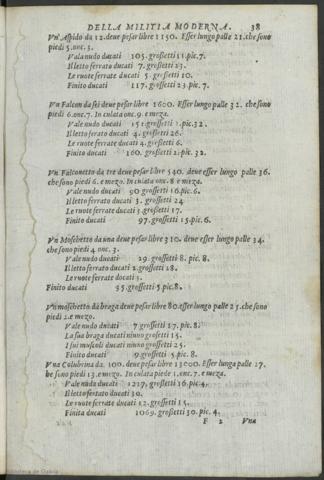 DELLA MILITIA MODERNA. 38
Vn' Aspido da 12. deue pesar libre 1150. Esser lungo palle 21. che sono
piedi 5. onc. 3.
Vale nudo ducati 105. grossetti 11. pic. 7.
Il letto ferrato ducati 7. grossetti 23.
Le ruote ferrate ducati 5. grossetti 10.
Finito ducati 117. grossetti 23. pic. 7.
Vn Falcon da sei deue pesar libre 1600. Esser lungo palle 32. che sono
piedi 6. onc. 7. In culata onc. 9. e meza.
Vale nudo ducati 151. grossetti 2. pic. 32.
Il letto ferato ducati 4. grossetti 26.
Le ruote ferrate ducati 4. grossetti 6.
Finito ducati 160. grossetti 2. pic. 32.
Vn Falconetto da tre deue pesar libre 540. deue esser lungo palle 36.
che sono piedi 6. e mezo. In culata onc. 8 e meza.
Vale nudo ducati 90 grossetti 16. pic. 6.
Il letto ferrato ducati 3. grossetti 24
Le ruote ferrate ducati 3. grossetti 17.
Finito ducati 97. grossetti 15. pic. 6.
Vn Moschetto da una deue pesar libre 310. deue esser lungo palle 34.
che sono piedi 4 onc. 3.
Vale nudo ducati 29. grossetti 8. pic. 8.
Il letto ferrato ducati 2. grossetti 28.
Le ruote ferrate ducati 3.
Finito ducati 35. grossetti 5 pic. 8.
Vn moschetto da braga deue pesar libre 80. esser lungo palle 25. che sono
piedi 2. e mezo.
Vale nudo ducati 7. grossetti 17. pic. 8.
La sua braga ducati niuno grossetti 15.
I sui muscoli ducati niun grossetti 25.
Finito ducati 9. grossetti 5. pic. 8.
Vna Colubrina da 100. deue pesar libre 13000. Esser lunga palle 27.
he sono piedi 13. e mezo. In culata piede 1. onc. 7. e meza.
Vale nudo ducati 1227. grossetti 16. pic. 4.
Il letto ferrato ducati 30.
Le ruote ferrate ducati 12. grossetti 15.
Finita ducati 1069. grossetti 30. pic. 4.
F 2 Vna